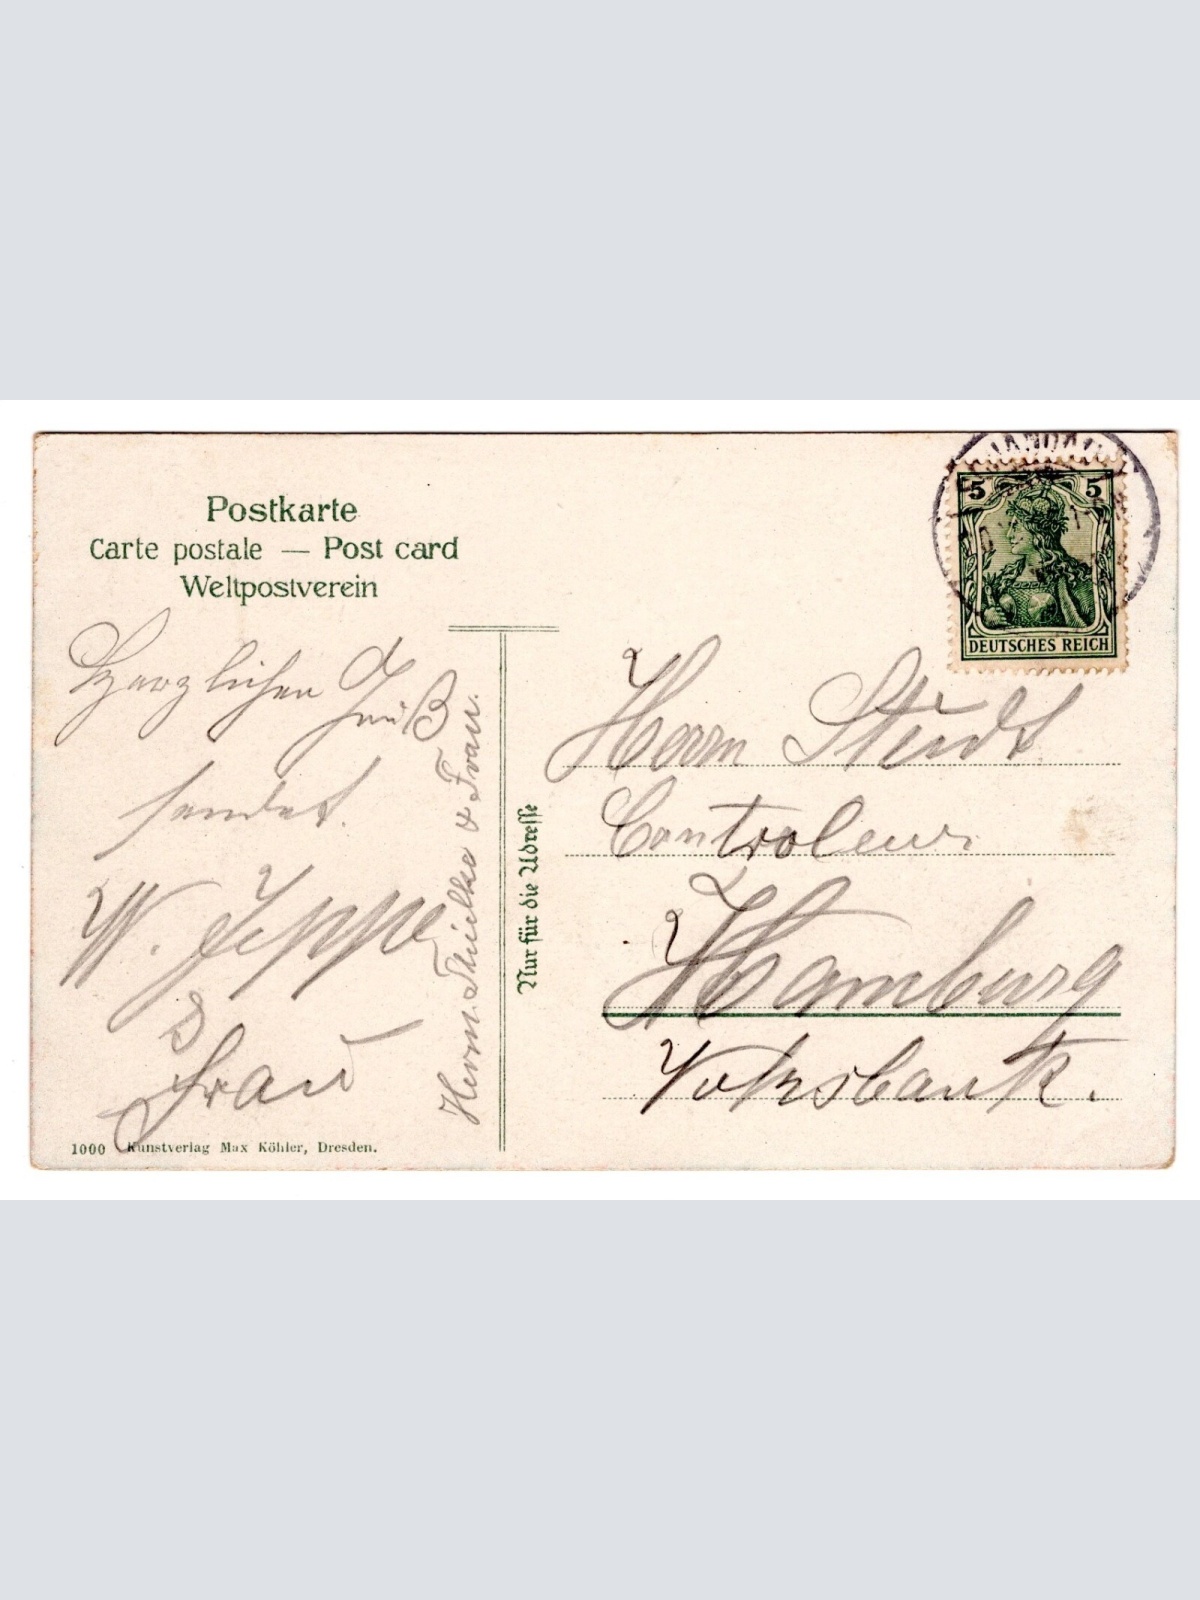 Postkarte
Carte postale — Post card
Weltpostverein
Herzlichen Gruß
sendet.
W. Jeppe
& Frau
Herm. Thielke & Frau.
1000 Kunstverlag Max Köhler, Dresden.
Nur für die Adresse
5 5
DEUTSCHES REICH
Herrn Studt
Controleur
Hamburg
Volksbank.